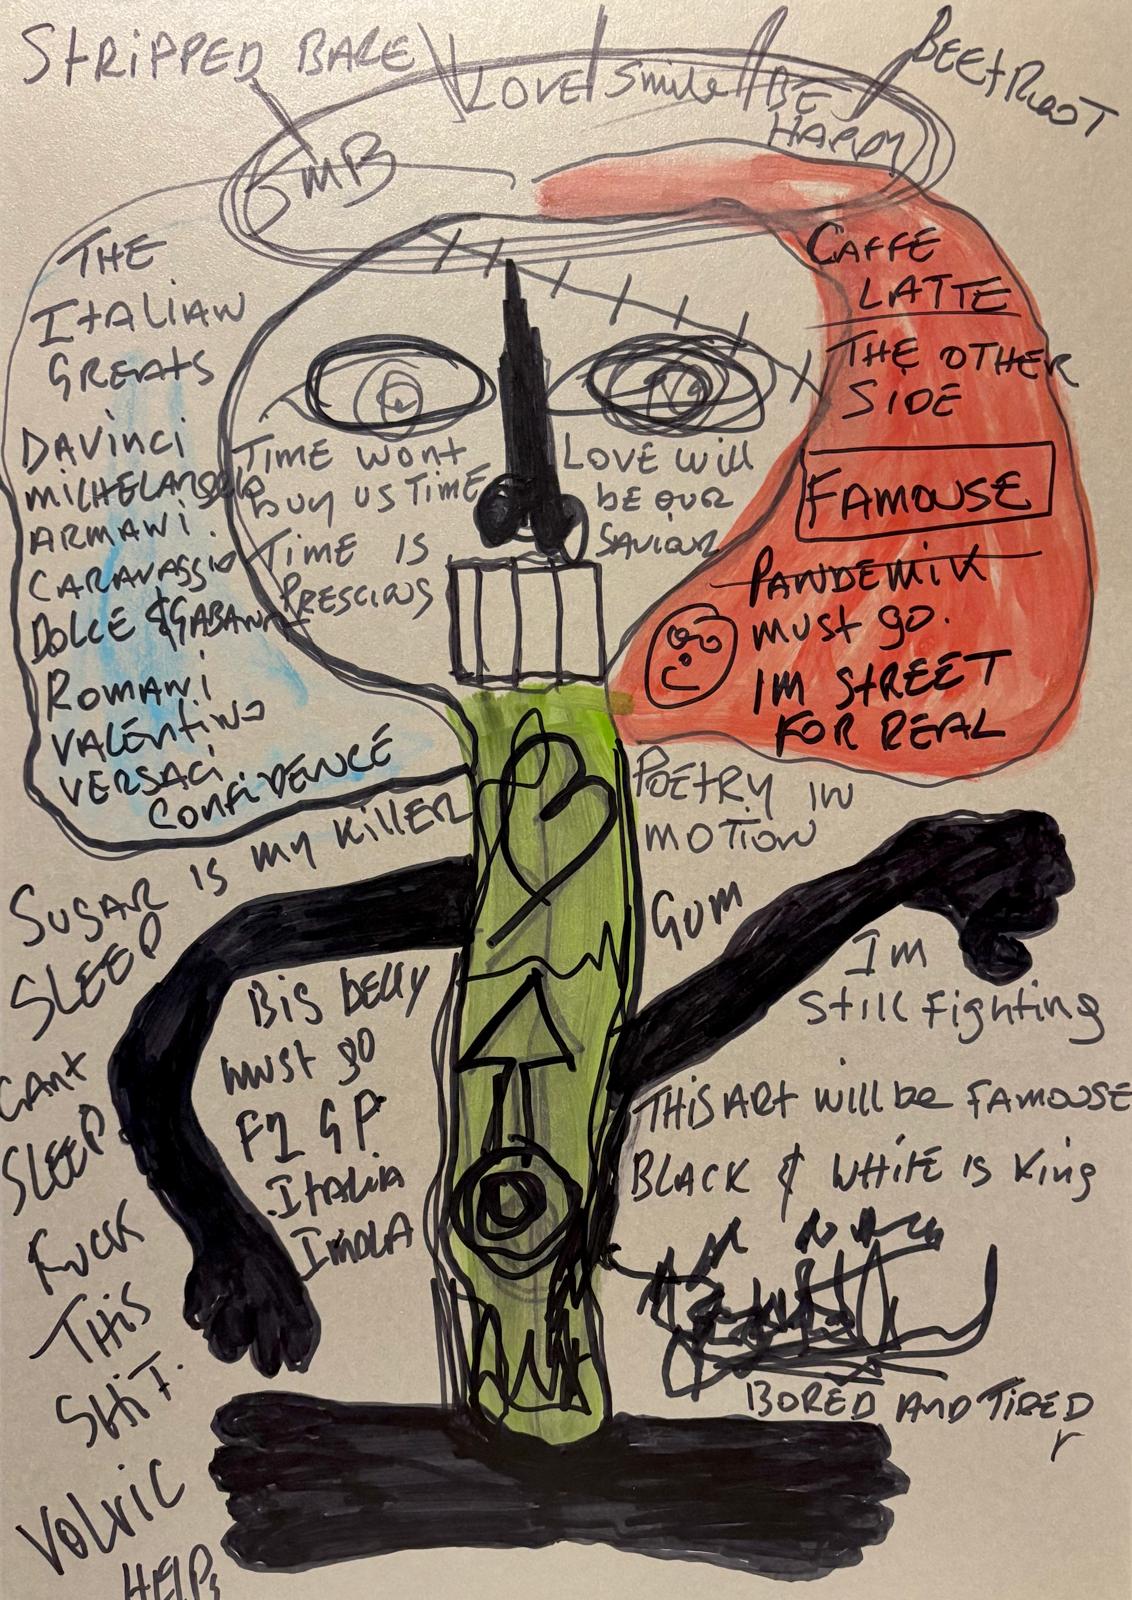 STRIPPED BARE
LOVE Smile BE
HAPPY
BEEtROOT
THE
ItALIAN
GREAtS
DAVinci
MiCHELANgelo
ARMANi.
CARAVASSIO
DOLCE & GABANA
ROMANi
VALENtino
VERSACi
CONFiDENCE
TIME WONt
buy US TIME
TIME IS
PRESCIOUS
LOVE Will
bE OUR
SAVIOUR
CAFFE
LATTE
THE OTHER
SIDE
FAMOUSE
PANDEMiK
must go.
IM StREET
FOR REAL
POEtRY IN
MOTION
GUM
SUGAR is my KillER
SLEEP
CANt
SLEEP
FUCK
THiS
SHiT.
VOLViC
HELPS
BiG bELLY
must go
F1 GP
ItALiA
IMOLA
I'm
Still Fighting
THiS ARt will be FAMOUSE
BLACK & WHitE is King
BORED AND TIRED